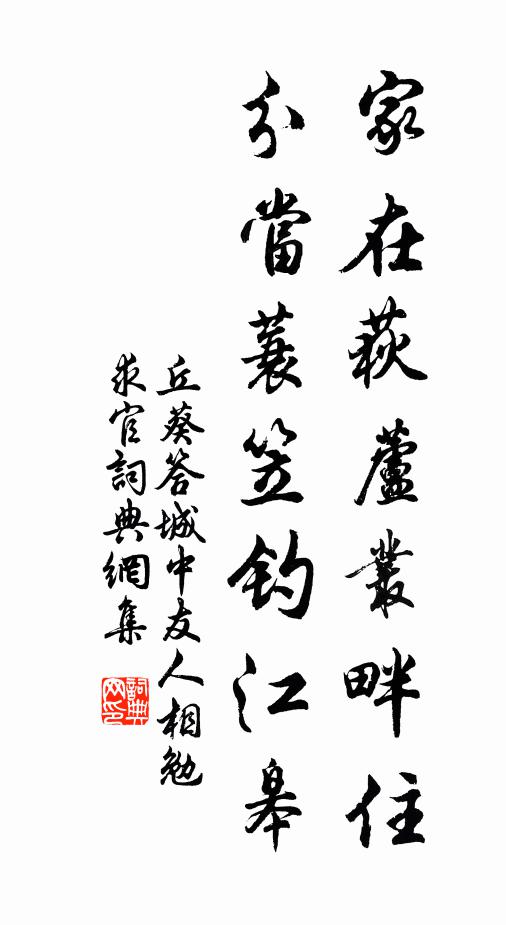 家在荻蘆叢畔住
分當蓑笠釣江皋
丘葵答城中友人相勉
求官詞典網集
詞典网印